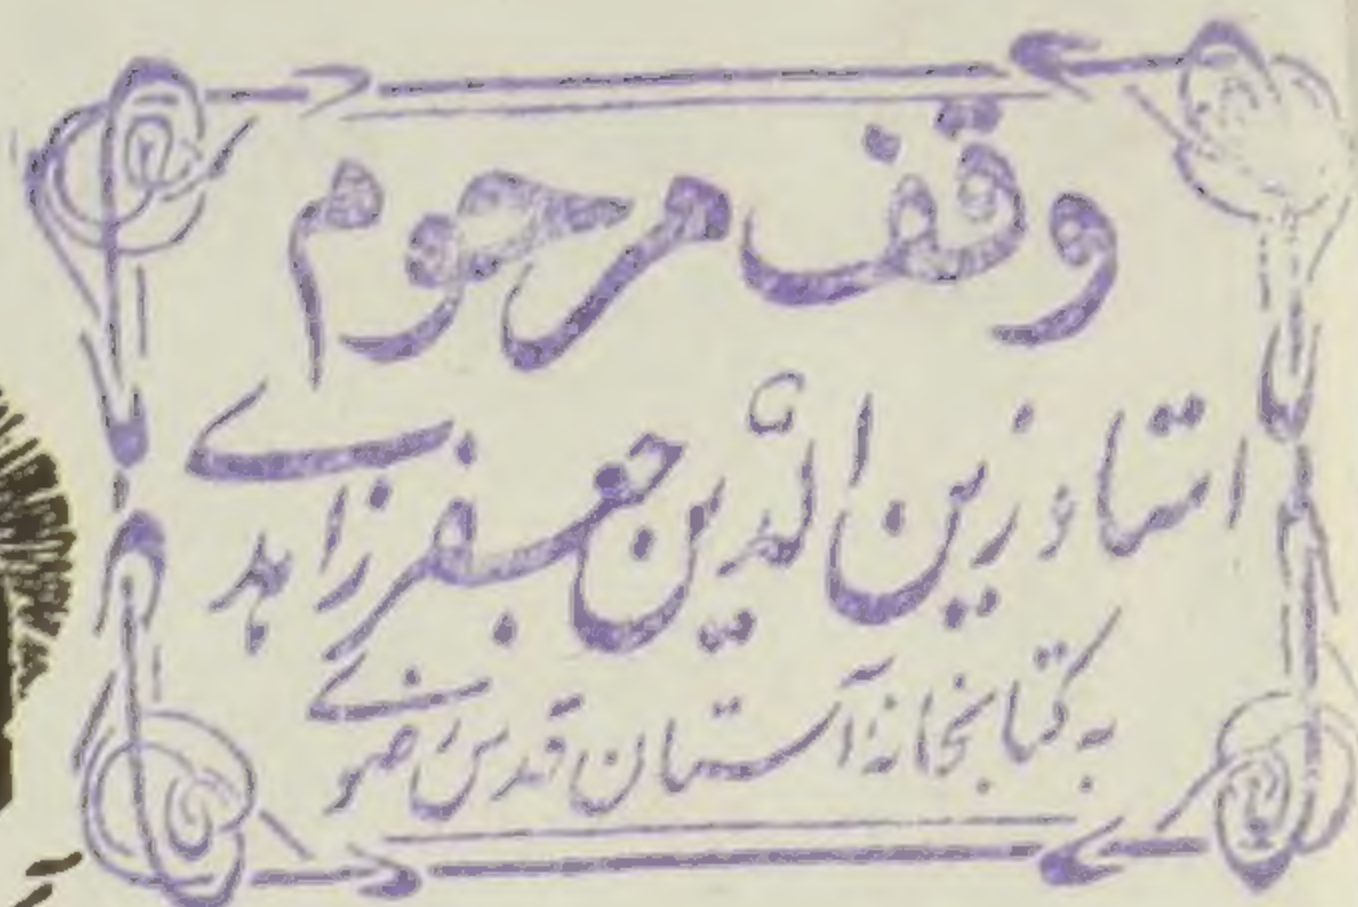 وقف مرحوم
استاد زین الدین جعفر زاهدی
به کتابخانهٔ آستان قدس رضوی